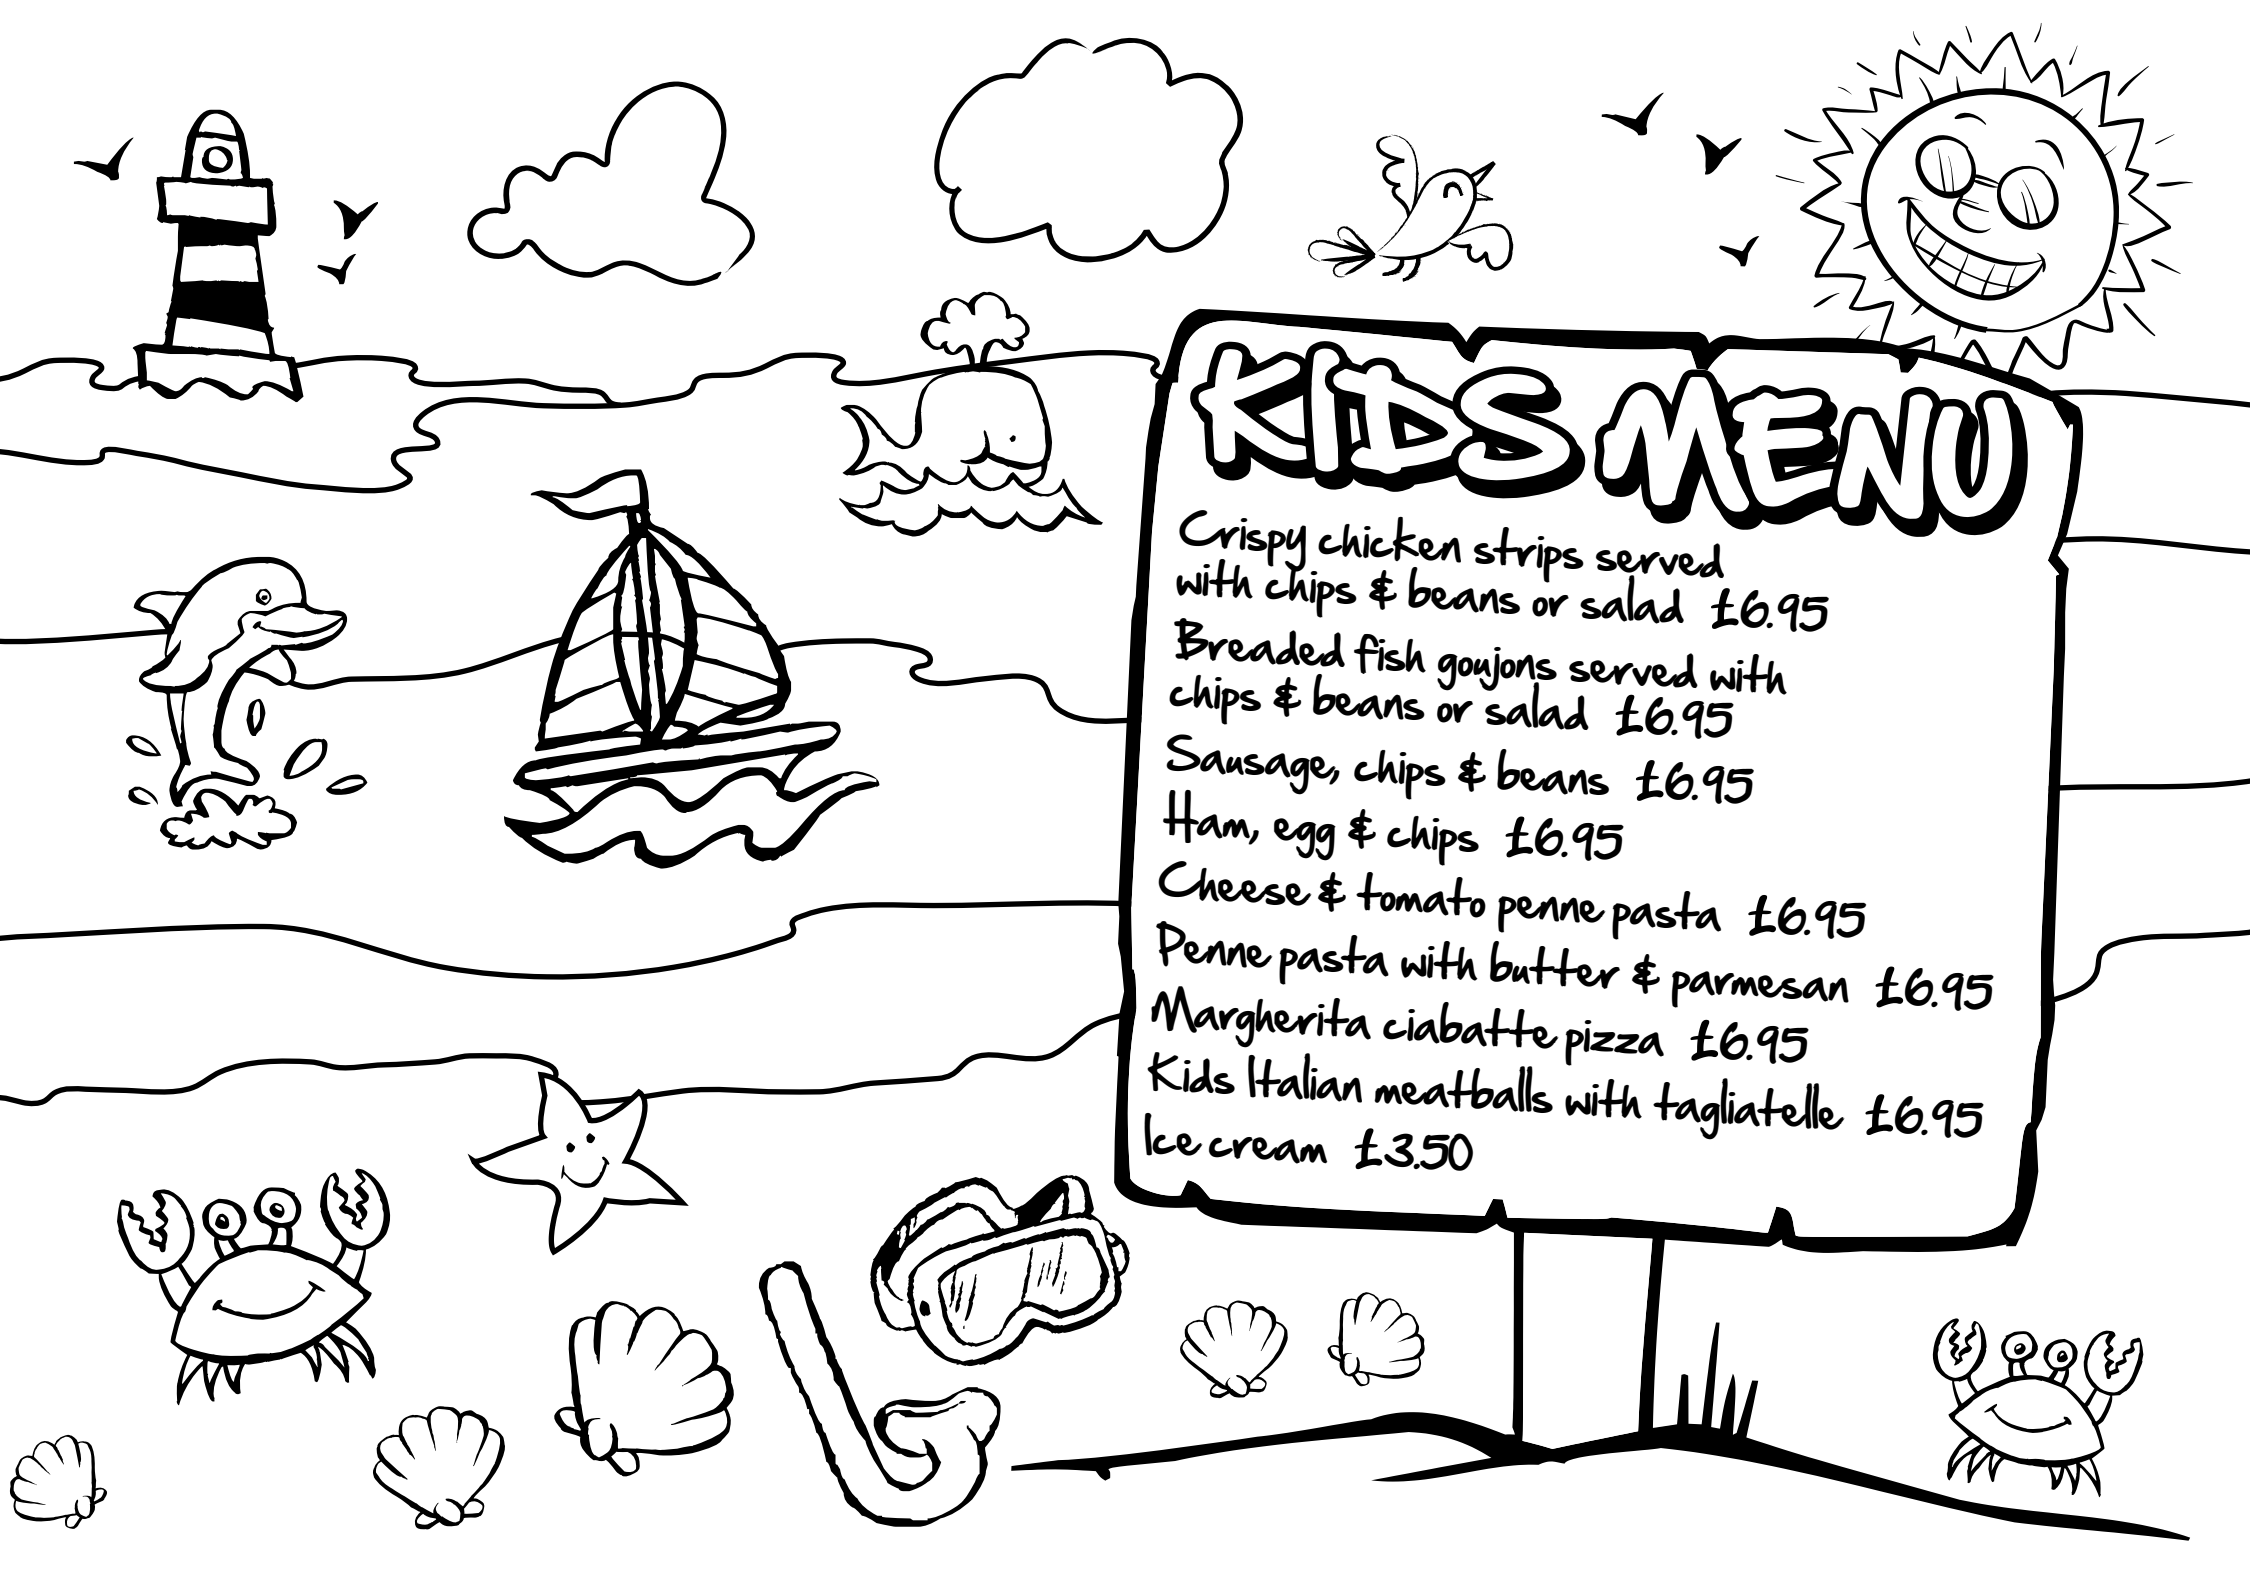 KIDS MENU
Crispy chicken strips served
with chips & beans or salad £6.95
Breaded fish goujons served with
chips & beans or salad £6.95
Sausage, chips & beans £6.95
Ham, egg & chips £6.95
Cheese & tomato penne pasta £6.95
Penne pasta with butter & parmesan £6.95
Margherita ciabatte pizza £6.95
Kids Italian meatballs with tagliatelle £6.95
Ice cream £3.50